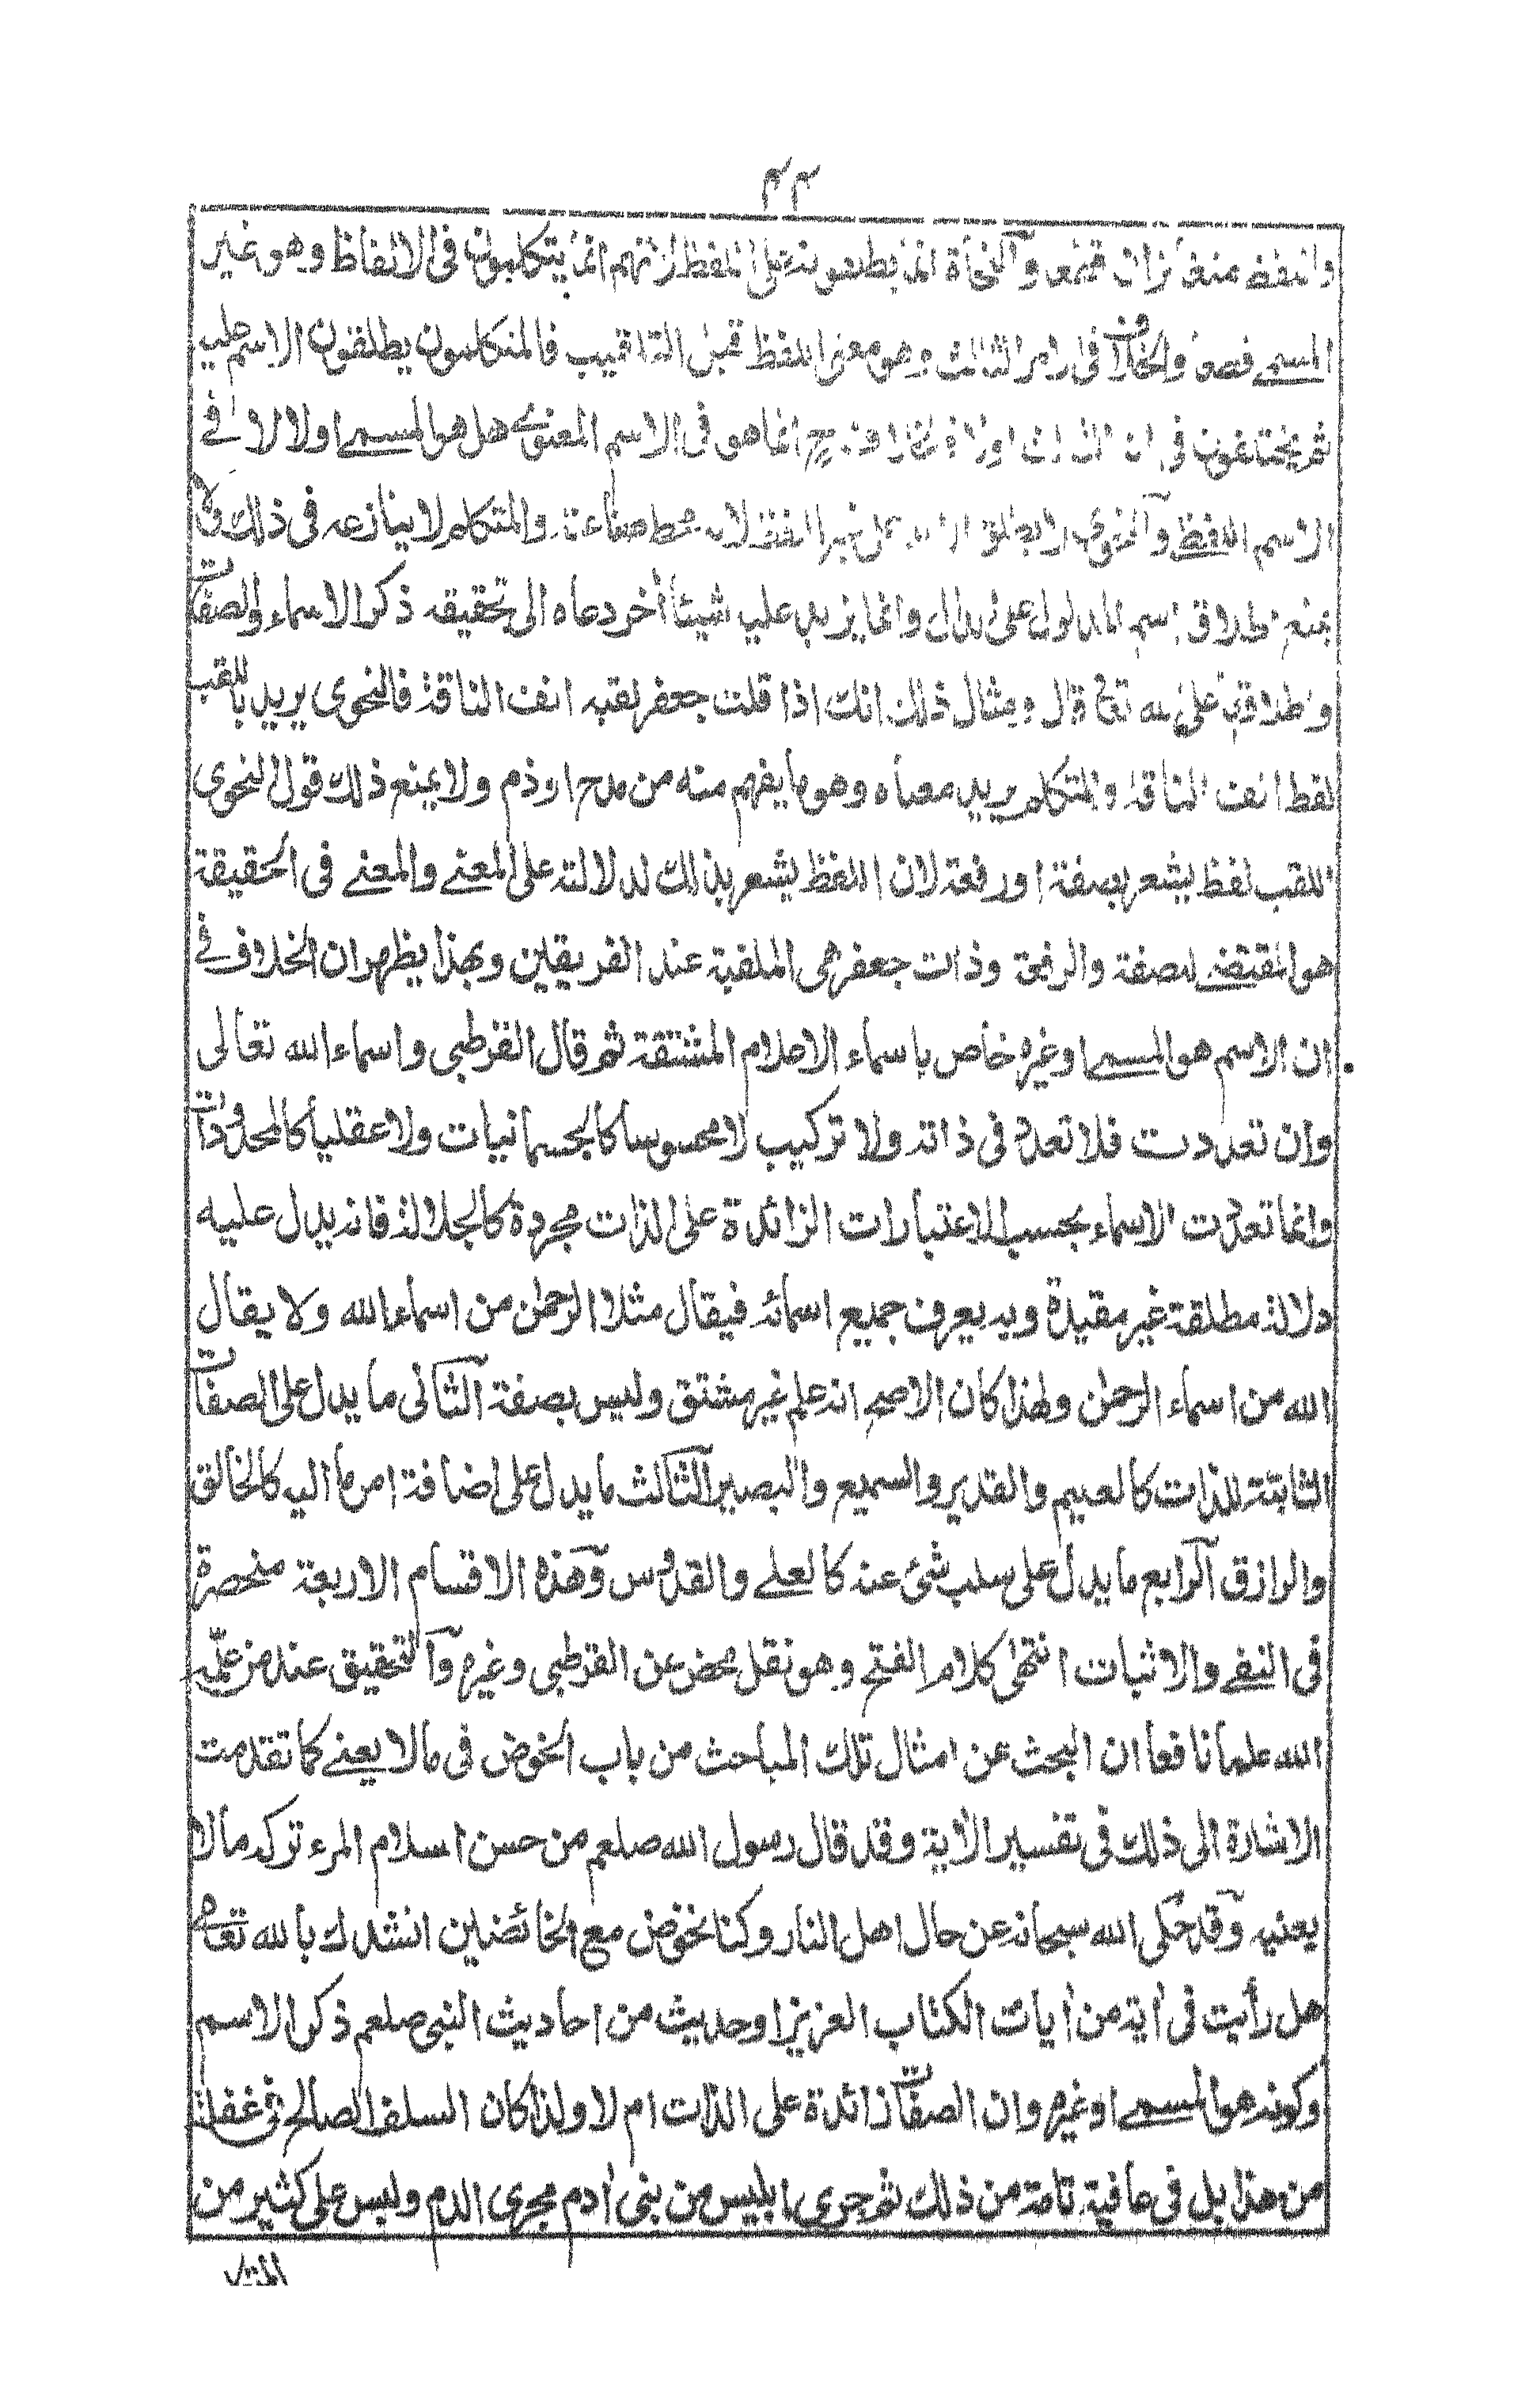 ٣٣
واللفظ والنحاة انما يطلقونه على اللفظ لانهم انما يتكلمون فى الالفاظ وهو غير
المسمے قطعا والخلاف فى الامر الثالث وهو معنى اللفظ قبل التلقيب فالمتكلمون يطلقون الاسم عليه
ثم يختلفون فى انه الثالث اولا فالخلاف ح انما هو فى الاسم المعنوے هل هو المسمے اولا لا فے
الاسم اللفظے والنحوى لا يطلق الاسم على غير اللفظ لانه محط صناعته والمتكلم لا ينازعه فى ذلك ولا
يمنع اطلاق اسم المدلول على الدال وانما يزيد عليه شيئا أخر دعاه الى تحقيقه ذكر الاسماء والصفات
واطلاقها على الله تعالى قال ومثال ذلك انك اذا قلت جعفر لقبه انف الناقة فالنحوى يريد باللقب
لفظ انف الناقة والمتكلم يريد معناه وهو ما يفهم منه من مدح او ذم ولا يمنع ذلك قول النحوى
اللقب لفظ يشعر بصفة او رفعة لان اللفظ يشعر بذلك لدلالته على المعنے والمعنے فى الحقيقة
هو المقتضے للصفة والرفعة وذات جعفر هى الملقبة عند الفريقين وبهذا يظهر ان الخلاف فے
ان الاسم هو المسمے او غيره خاص باسماء الاعلام المشتقة ثم قال القرطبى واسماء الله تعالى
وان تعددت فلا تعدد فى ذاته ولا تركيب لا محسوسا كالجسمانيات ولا عقليا كالمحدودات
وانما تعددت الاسماء بحسب الاعتبارات الزائدة على الذات مجردة كالجلالة فانه يدل عليه
دلالة مطلقة غير مقيدة وبه يعرف جميع اسمائه فيقال مثلا الرحمن من اسماء الله ولا يقال
الله من اسماء الرحمن ولهذا كان الاصح انه علم غير مشتق وليس بصفة الثانى ما يدل على الصفات
الثابتة للذات كالعليم والقدير والسميع والبصير الثالث ما يدل على اضافة امر ما اليه كالخالق
والرازق الرابع ما يدل على سلب شئ عنه كالعلے والقدوس وهذه الاقسام الاربعة منحصرة
فى النفے والاثبات انتهى كلام الفتح وهو نقل محض عن القرطبى وغيره والتحقيق عند من علّمه
الله علما نافعا ان البحث عن امثال تلك المباحث من باب الخوض فى ما لا يعنے كما تقدمت
الاشارة الى ذلك فى تفسير الأية وقد قال رسول الله صلعم من حسن اسلام المرء تركه ما لا
يعنيه وقد حكى الله سبحانه عن حال اهل النار وكنا نخوض مع الخائضين انشدك بالله تعالى
هل رأيت فى أية من أيات الكتاب العزيز او حديث من احاديث النبى صلعم ذكر الاسم
وكونه هو المسمے او غيره وان الصفات زائدة على الذات ام لا ولذا كان السلف الصالح فى غفلة
من هذا بل فى عافية تامة من ذلك ثم جرى ابليس من بنى أدم مجرى الدم وليس على كثير من